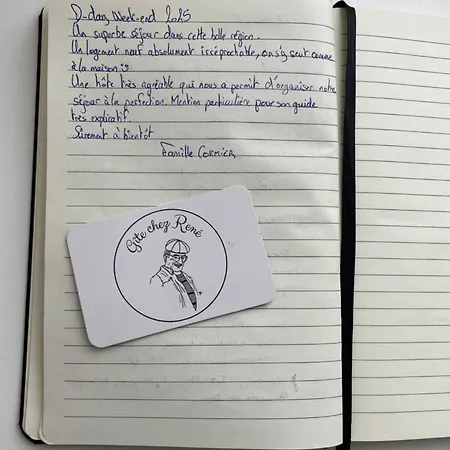 D-day Week-end 2025
Un superbe séjour dans cette belle région.
Un logement neuf absolument irréprochable, on s'y sent comme
à la maison
Une hôte très agréable qui nous a permit d'organiser notre
séjour à la perfection. Mention particulière pour son guide
très explicatif.
Sûrement à bientôt
Famille CORMIER
Gîte chez René